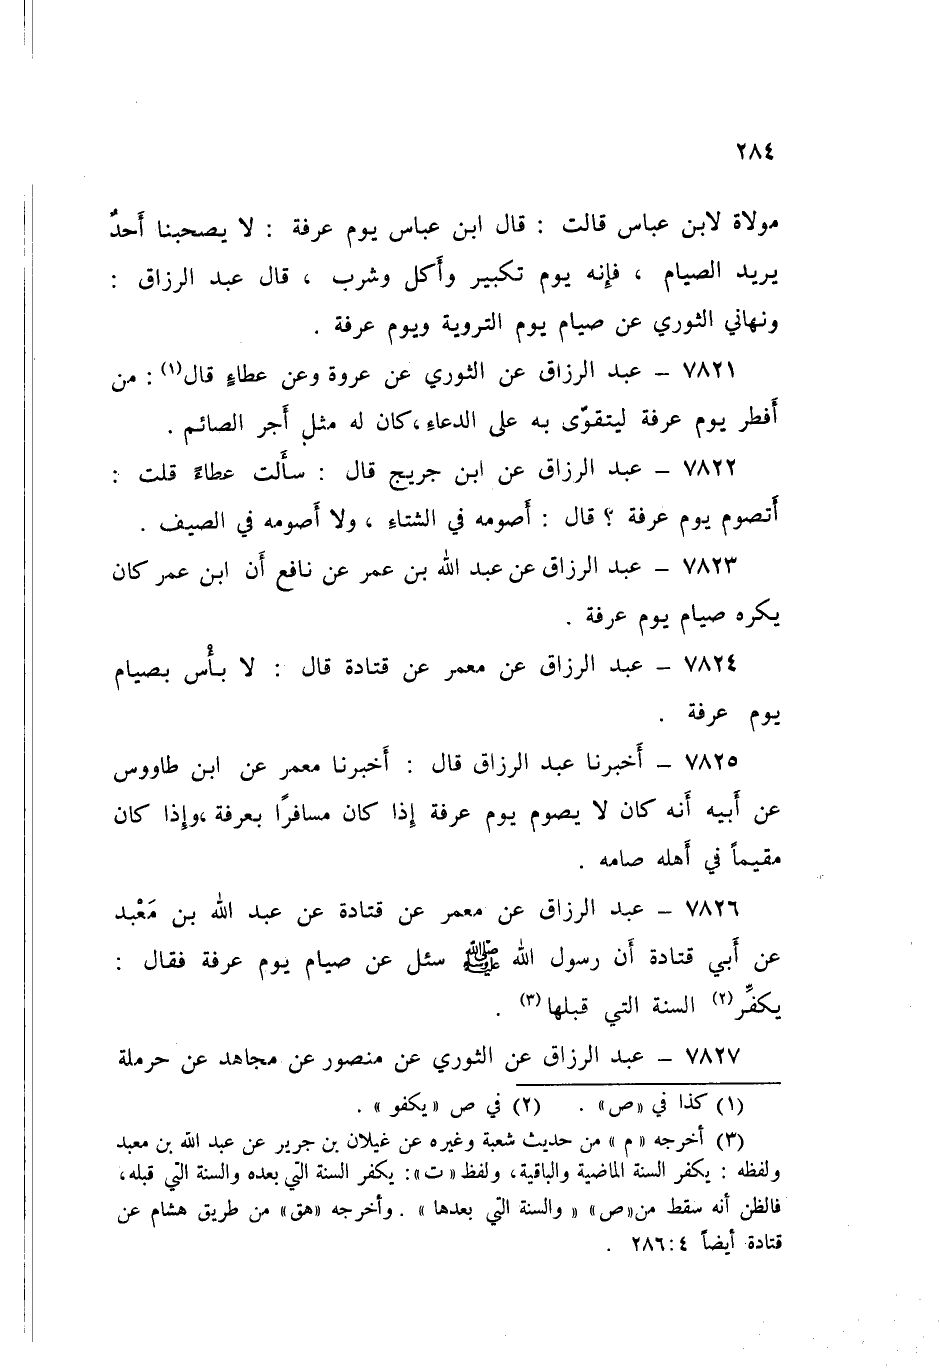 ٢٨٤
مولاة لابن عباس قالت : قال ابن عباس يوم عرفة : لا يصحبنا أَحدٌ
يريد الصيام ، فإنه يوم تكبير وأَكل وشرب ، قال عبد الرزاق :
ونهاني الثوري عن صيام يوم التروية ويوم عرفة .
٧٨٢١ – عبد الرزاق عن الثوري عن عروة وعن عطاءٍ قال(١) : من
أَفطر يوم عرفة ليتقوّى به على الدعاء، كان له مثل أَجر الصائم .
٧٨٢٢ – عبد الرزاق عن ابن جريج قال : سأَلت عطاءً قلت :
أَتصوم يوم عرفة ؟ قال : أَصومه في الشتاء ، ولا أَصومه في الصيف .
٧٨٢٣ – عبد الرزاق عن عبد الله بن عمر عن نافع أَن ابن عمر كان
يكره صيام يوم عرفة .
٧٨٢٤ – عبد الرزاق عن معمر عن قتادة قال : لا بأْس بصيام
يوم عرفة .
٧٨٢٥ – أَخبرنا عبد الرزاق قال : أَخبرنا معمر عن ابن طاووس
عن أَبيه أَنه كان لا يصوم يوم عرفة إِذا كان مسافرًا بعرفة ،وإِذا كان
مقيماً في أَهله صامه .
٧٨٢٦ – عبد الرزاق عن معمر عن قتادة عن عبد الله بن مَعْبد
عن أَبي قتادة أَن رسول الله ﷺ سئل عن صيام يوم عرفة فقال :
يكفِّر(٢) السنة التي قبلها(٣) .
٧٨٢٧ – عبد الرزاق عن الثوري عن منصور عن مجاهد عن حرملة
(١) كذا في «ص» . (٢) في ص «يكفو» .
(٣) أخرجه «م» من حديث شعبة وغيره عن غيلان بن جرير عن عبد الله بن معبد
ولفظه : يكفر السنة الماضية والباقية، ولفظ «ت»: يكفر السنة التي بعده والسنة التي قبله،
فالظن أنه سقط من«ص» « والسنة التي بعدها » . وأخرجه «هق» من طريق هشام عن
قتادة أيضاً ٤:٢٨٦ .